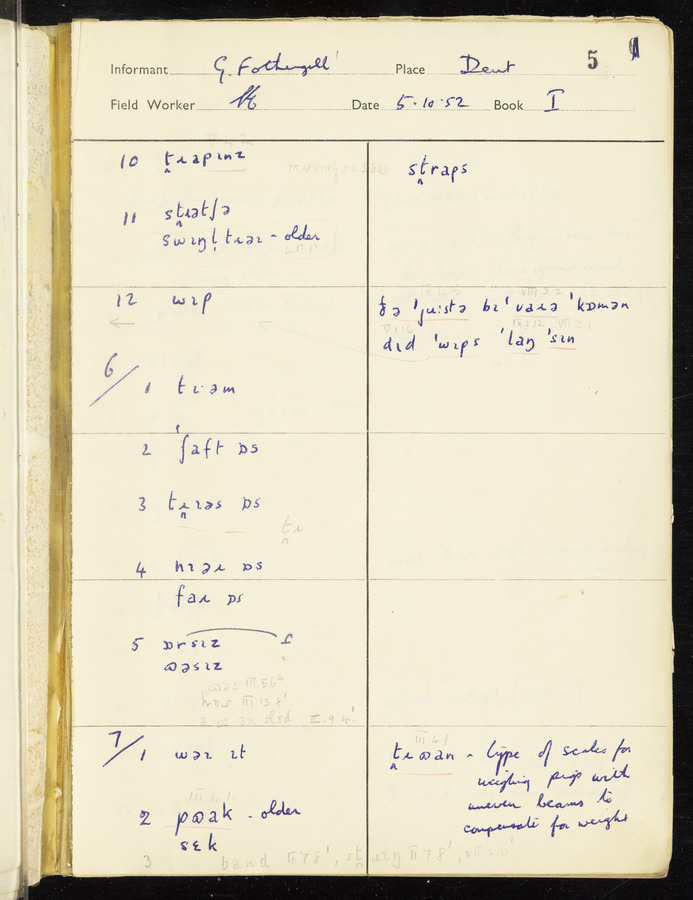 Informant G. Fothergill Place Dent 5
Field Worker Date 5·10·52 Book I
10 t̪ɹapɪnz
st̪ɹaps
11 st̪ɹɛtʃə
swɪŋltɹɪəɪ - older
12 wɪp
ðə 'juːstə bɪ 'vaɹə 'kɒmən
dɪd 'wɪps 'laŋ 'sɪn
6/1 tɪ·əm
2 ʃaft ɒs
3 t̪ɹɪəs ɒs
t̪ɹ
4 nɪəɹ ɒs
faɹ ɒs
5 ɒɾsɪz
ɷəsɪz
ɷəs III.5.6⁴
hɒs III.13.8¹
II.9.4¹
III.4.1
7/1 wəɪ ɪt
t̪ɹɷan - type of scales for
weighing pigs with
uneven beams to
compensate for weight
2 pɷak - older
sɛk
3 band II 7 8¹